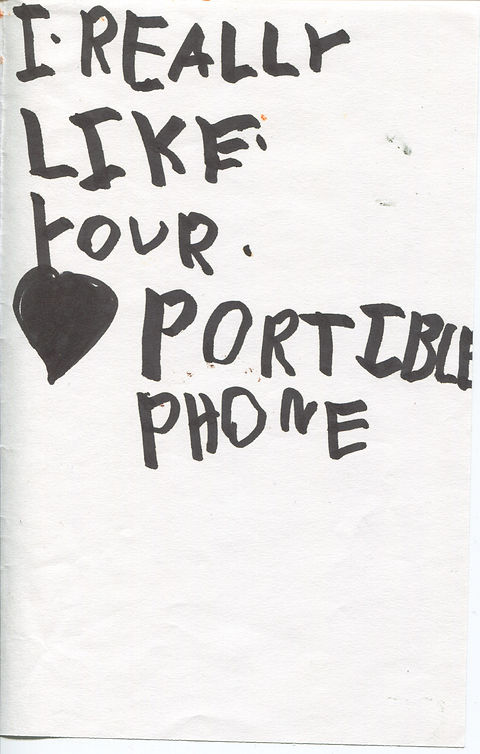 I·REALLY
LIKE·
YOUR.
PORTIBLE
PHONE